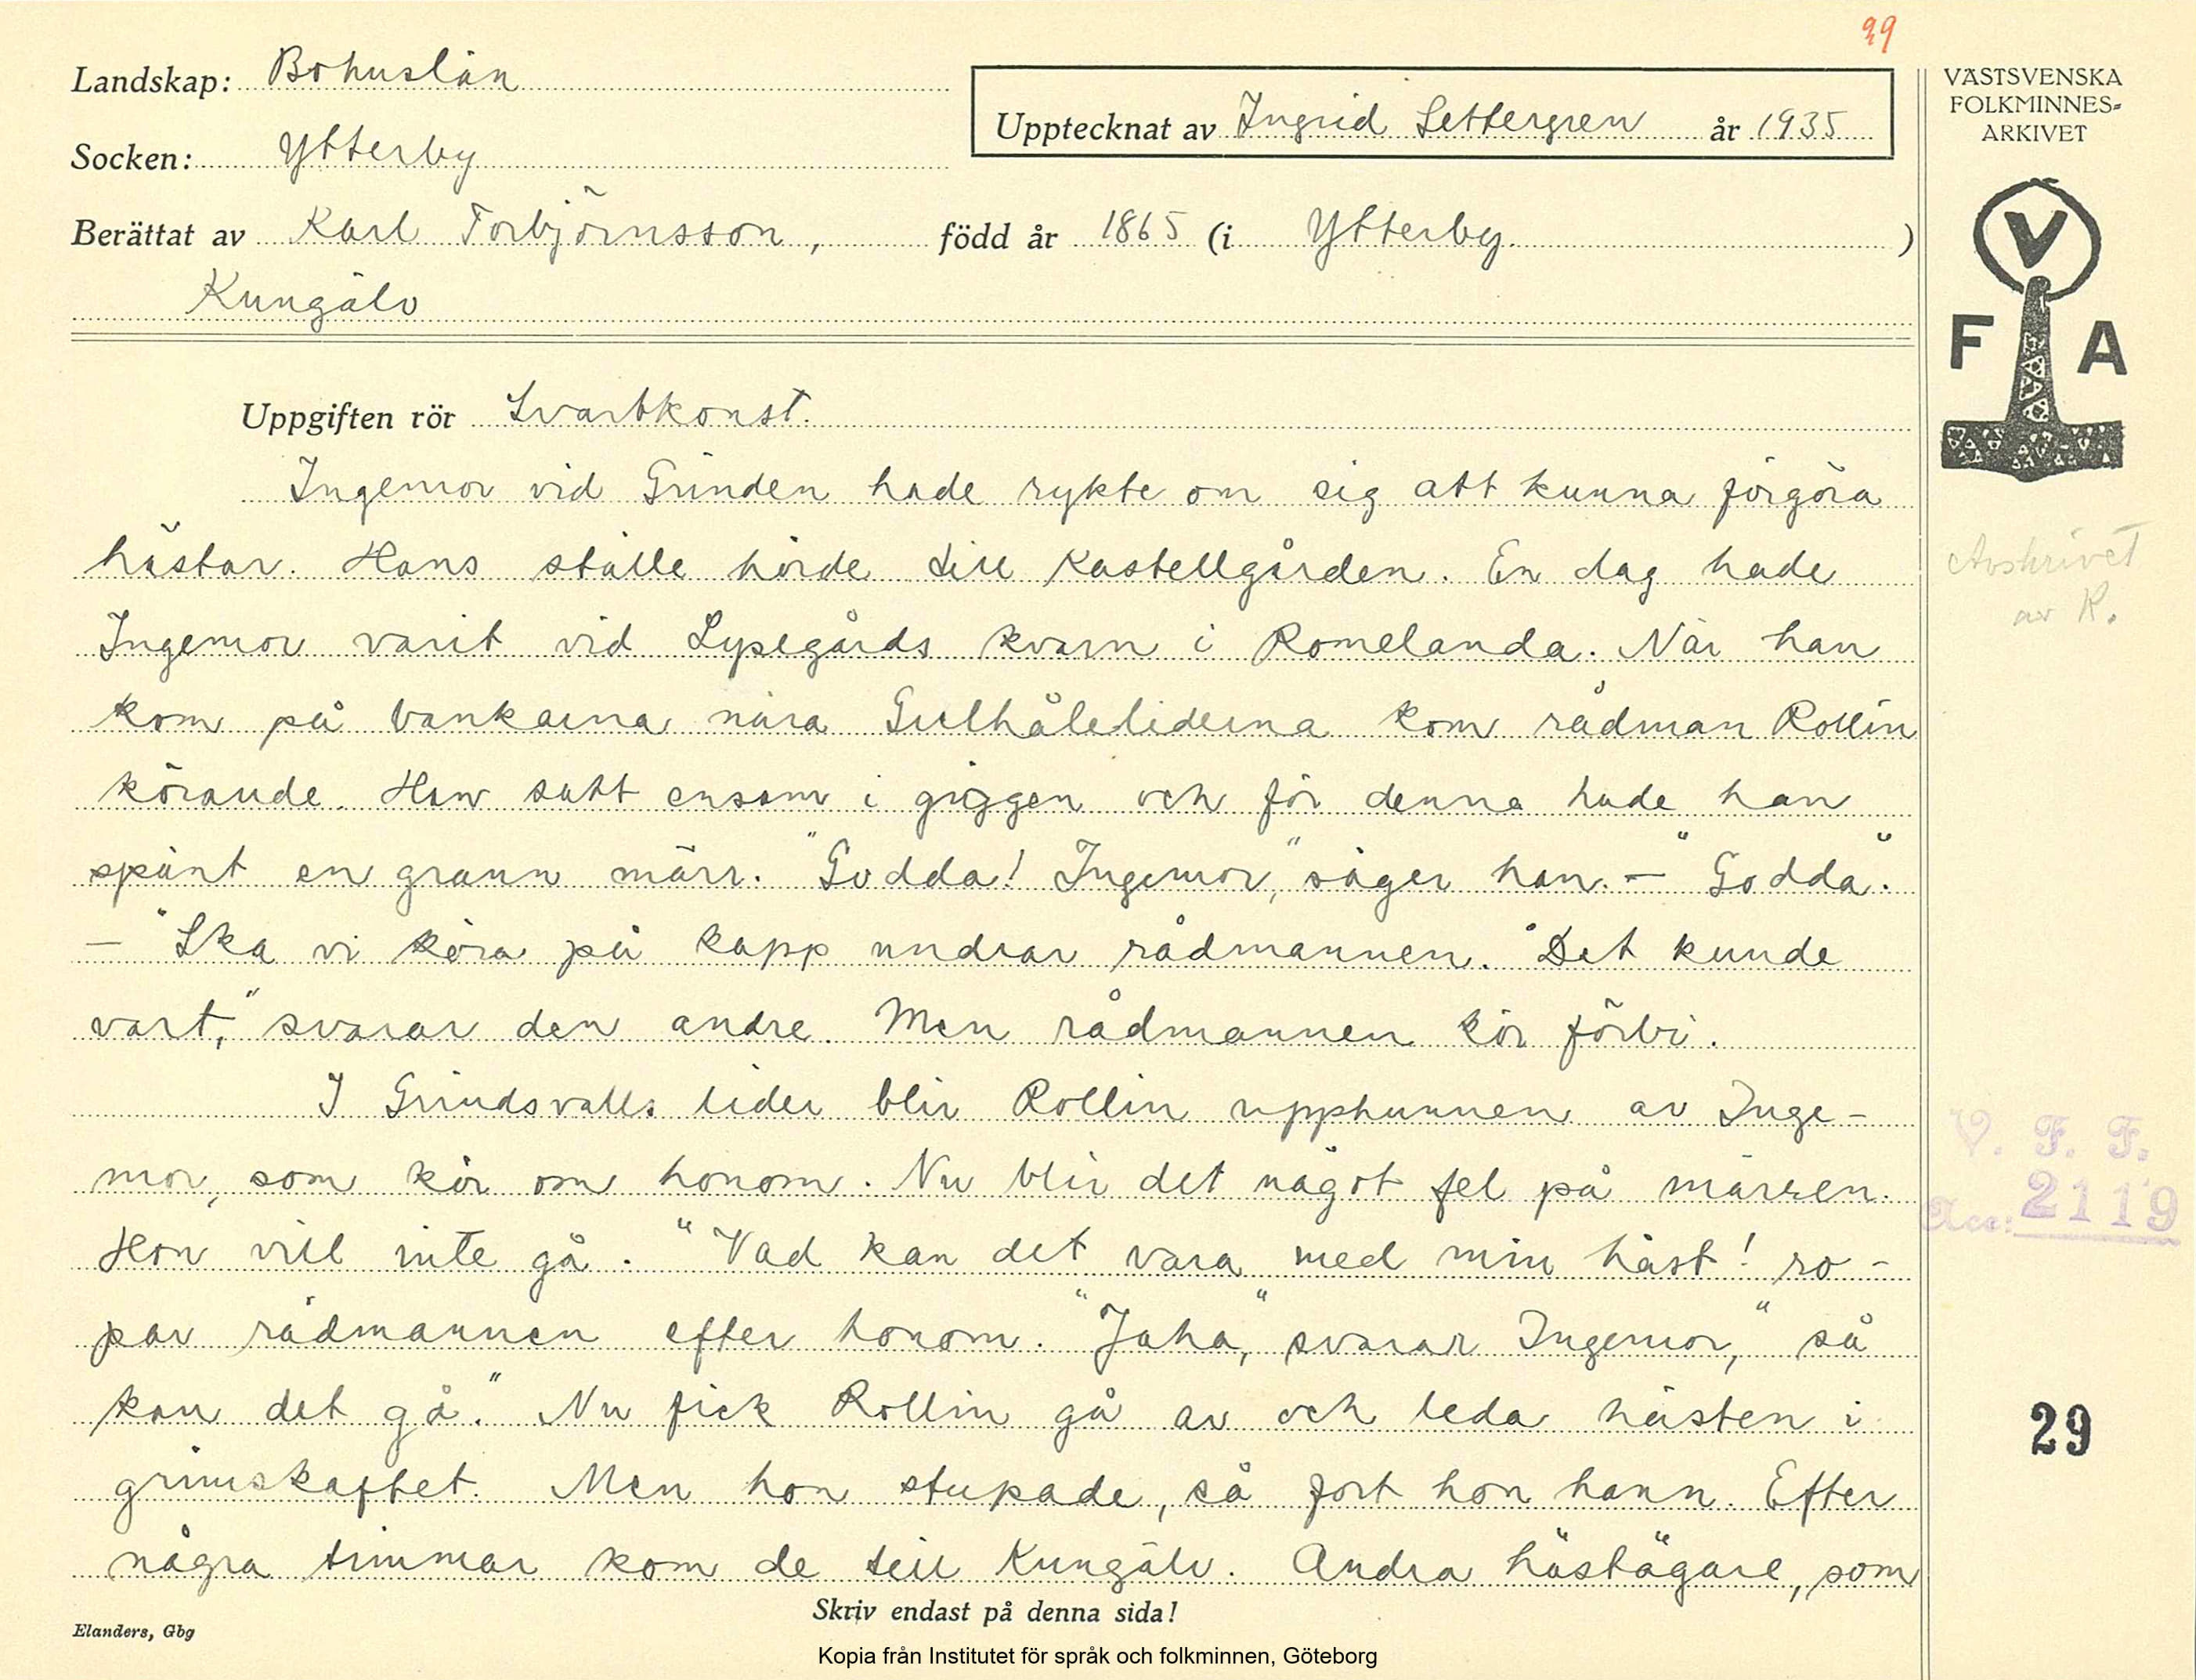 99
Landskap: Bohuslän
Socken: Ytterby
Upptecknat av Ingrid Settergren år 1935
Berättat av Karl Torbjörnsson, född år 1865 (i Ytterby )
Kungälv
VÄSTSVENSKA
FOLKMINNES-
ARKIVET
V
F A
Uppgiften rör Svartkonst.
Ingemor vid Grinden hade rykte om sig att kunna förgöra
hästar. Hans ställe hörde till Kastellgården. En dag hade
Ingemor varit vid Lysegårds kvarn i Romelanda. När han
kom på bankarna nära Gullhåleliderna kom rådman Rollin
körande. Han satt ensam i giggen och för denna hade han
spänt en grann märr. "Godda! Ingemor," säger han. — "Godda".
— "Ska vi köra på kapp undrar rådmannen. "Det kunde
vart," svarar den andre. Men rådmannen kör förbi.
I Grindsvalls lider blir Rollin upphunnen av Inge-
mor, som kör om honom. Nu blir det något fel på märren.
Hon vill inte gå. "Vad kan det vara med min häst! ro-
par rådmannen efter honom. "Jaha," svarar Ingemor, "så
kan det gå." Nu fick Rollin gå av och leda hästen i
grimskaftet. Men hon stupade, så fort hon hann. Efter
några timmar kom de till Kungälv. Andra hästägare, som
Avskrivet
av R.
V. F. F.
Acc: 2119
29
Skriv endast på denna sida!
Elanders, Gbg
Kopia från Institutet för språk och folkminnen, Göteborg